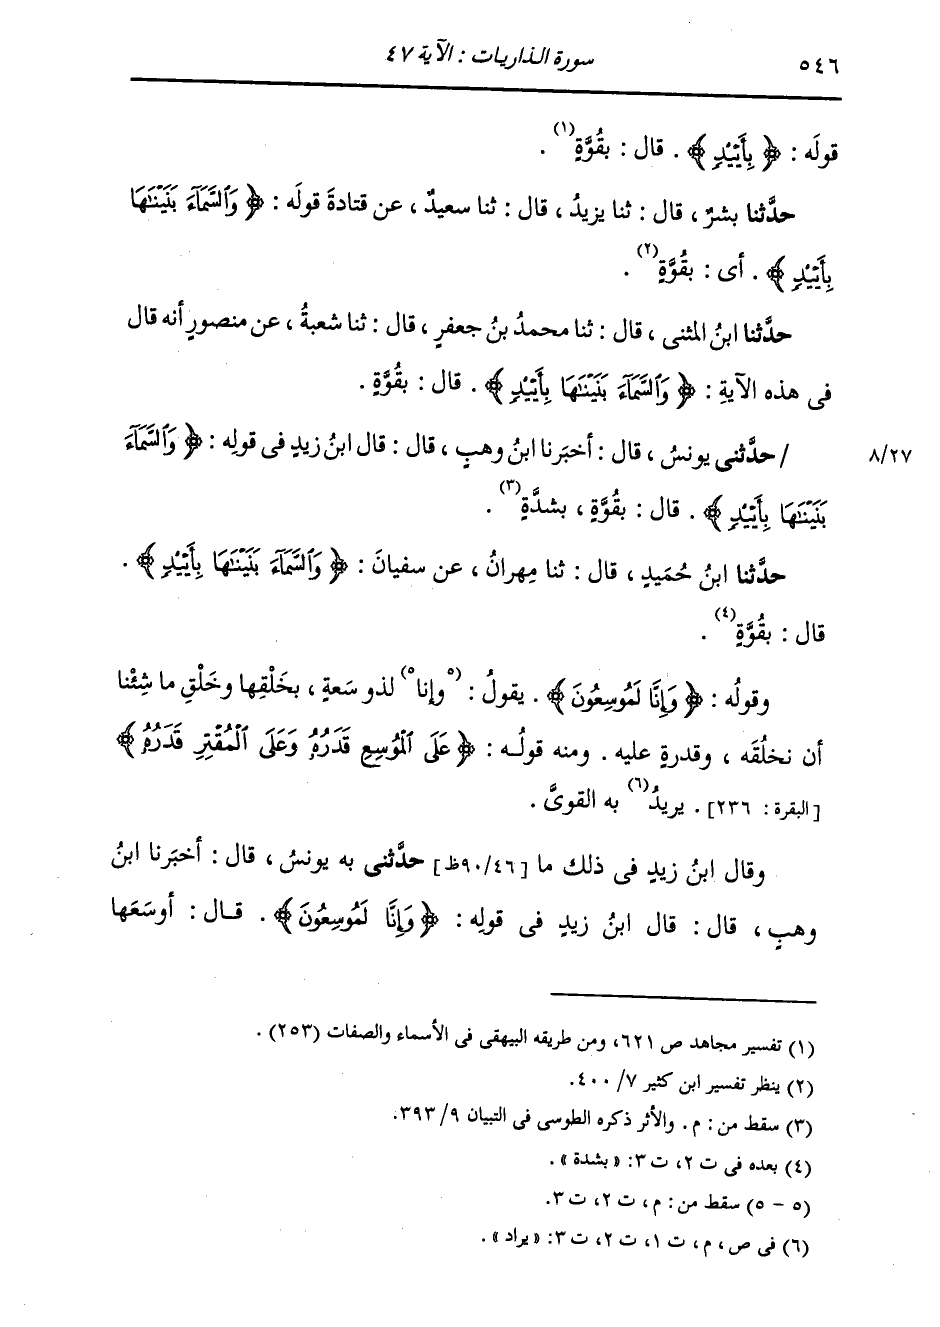 ٥٤٦ سورة الذاريات : الآية ٤٧
قولَه : ﴿ بِأَيْيْدٍ ﴾ . قال : بقُوَّةٍ(١) .
حدَّثنا بشرٌ ، قال : ثنا يزيدُ ، قال : ثنا سعيدٌ ، عن قتادةَ قولَه : ﴿ وَٱلسَّمَآءَ بَنَيْنَٰهَا
بِأَيْيْدٍ ﴾ . أى : بقُوَّةٍ(٢) .
حدَّثنا ابنُ المثنى ، قال : ثنا محمدُ بنُ جعفرٍ ، قال : ثنا شعبةُ ، عن منصورٍ أنه قال
فى هذه الآيةِ : ﴿ وَٱلسَّمَآءَ بَنَيْنَٰهَا بِأَيْيْدٍ ﴾ . قال : بقُوَّةٍ .
٨/٢٧ / حدَّثنى يونسُ ، قال : أخبَرنا ابنُ وهبٍ ، قال : قال ابنُ زيدٍ فى قولِه : ﴿ وَٱلسَّمَآءَ
بَنَيْنَٰهَا بِأَيْيْدٍ ﴾ . قال : بقُوَّةٍ ، بشدَّةٍ(٣) .
حدَّثنا ابنُ حُمَيدٍ ، قال : ثنا مِهرانُ ، عن سفيانَ : ﴿ وَٱلسَّمَآءَ بَنَيْنَٰهَا بِأَيْيْدٍ ﴾ .
قال : بقُوَّةٍ(٤) .
وقولُه : ﴿ وَإِنَّا لَمُوسِعُونَ ﴾ . يقولُ : (٥وإنا٥) لذو سَعةٍ ، بخَلْقِها وخَلْقِ ما شِئْنا
أن نخلُقَه ، وقدرةٍ عليه . ومنه قولُـه : ﴿ عَلَى ٱلْمُوسِعِ قَدَرُهُۥ وَعَلَى ٱلْمُقْتِرِ قَدَرُهُۥ ﴾
[البقرة : ٢٣٦] . يريدُ(٦) به القوىَّ .
وقال ابنُ زيدٍ فى ذلك ما [٩٠/٤٦ظ] حدَّثنى به يونسُ ، قال : أخبَرنا ابنُ
وهبٍ ، قال : قال ابنُ زيدٍ فى قولِه : ﴿ وَإِنَّا لَمُوسِعُونَ ﴾ . قـال : أوسَعَها
(١) تفسير مجاهد ص ٦٢١، ومن طريقه البيهقى فى الأسماء والصفات (٢٥٣) .
(٢) ينظر تفسير ابن كثير ٧/ ٤٠٠.
(٣) سقط من : م . والأثر ذكره الطوسى فى التبيان ٩/ ٣٩٣.
(٤) بعده فى ت ٢، ت ٣: « بشدة » .
(٥ - ٥) سقط من : م ، ت ٢، ت ٣.
(٦) فى ص ، م ، ت ١، ت ٢، ت ٣: « يراد » .